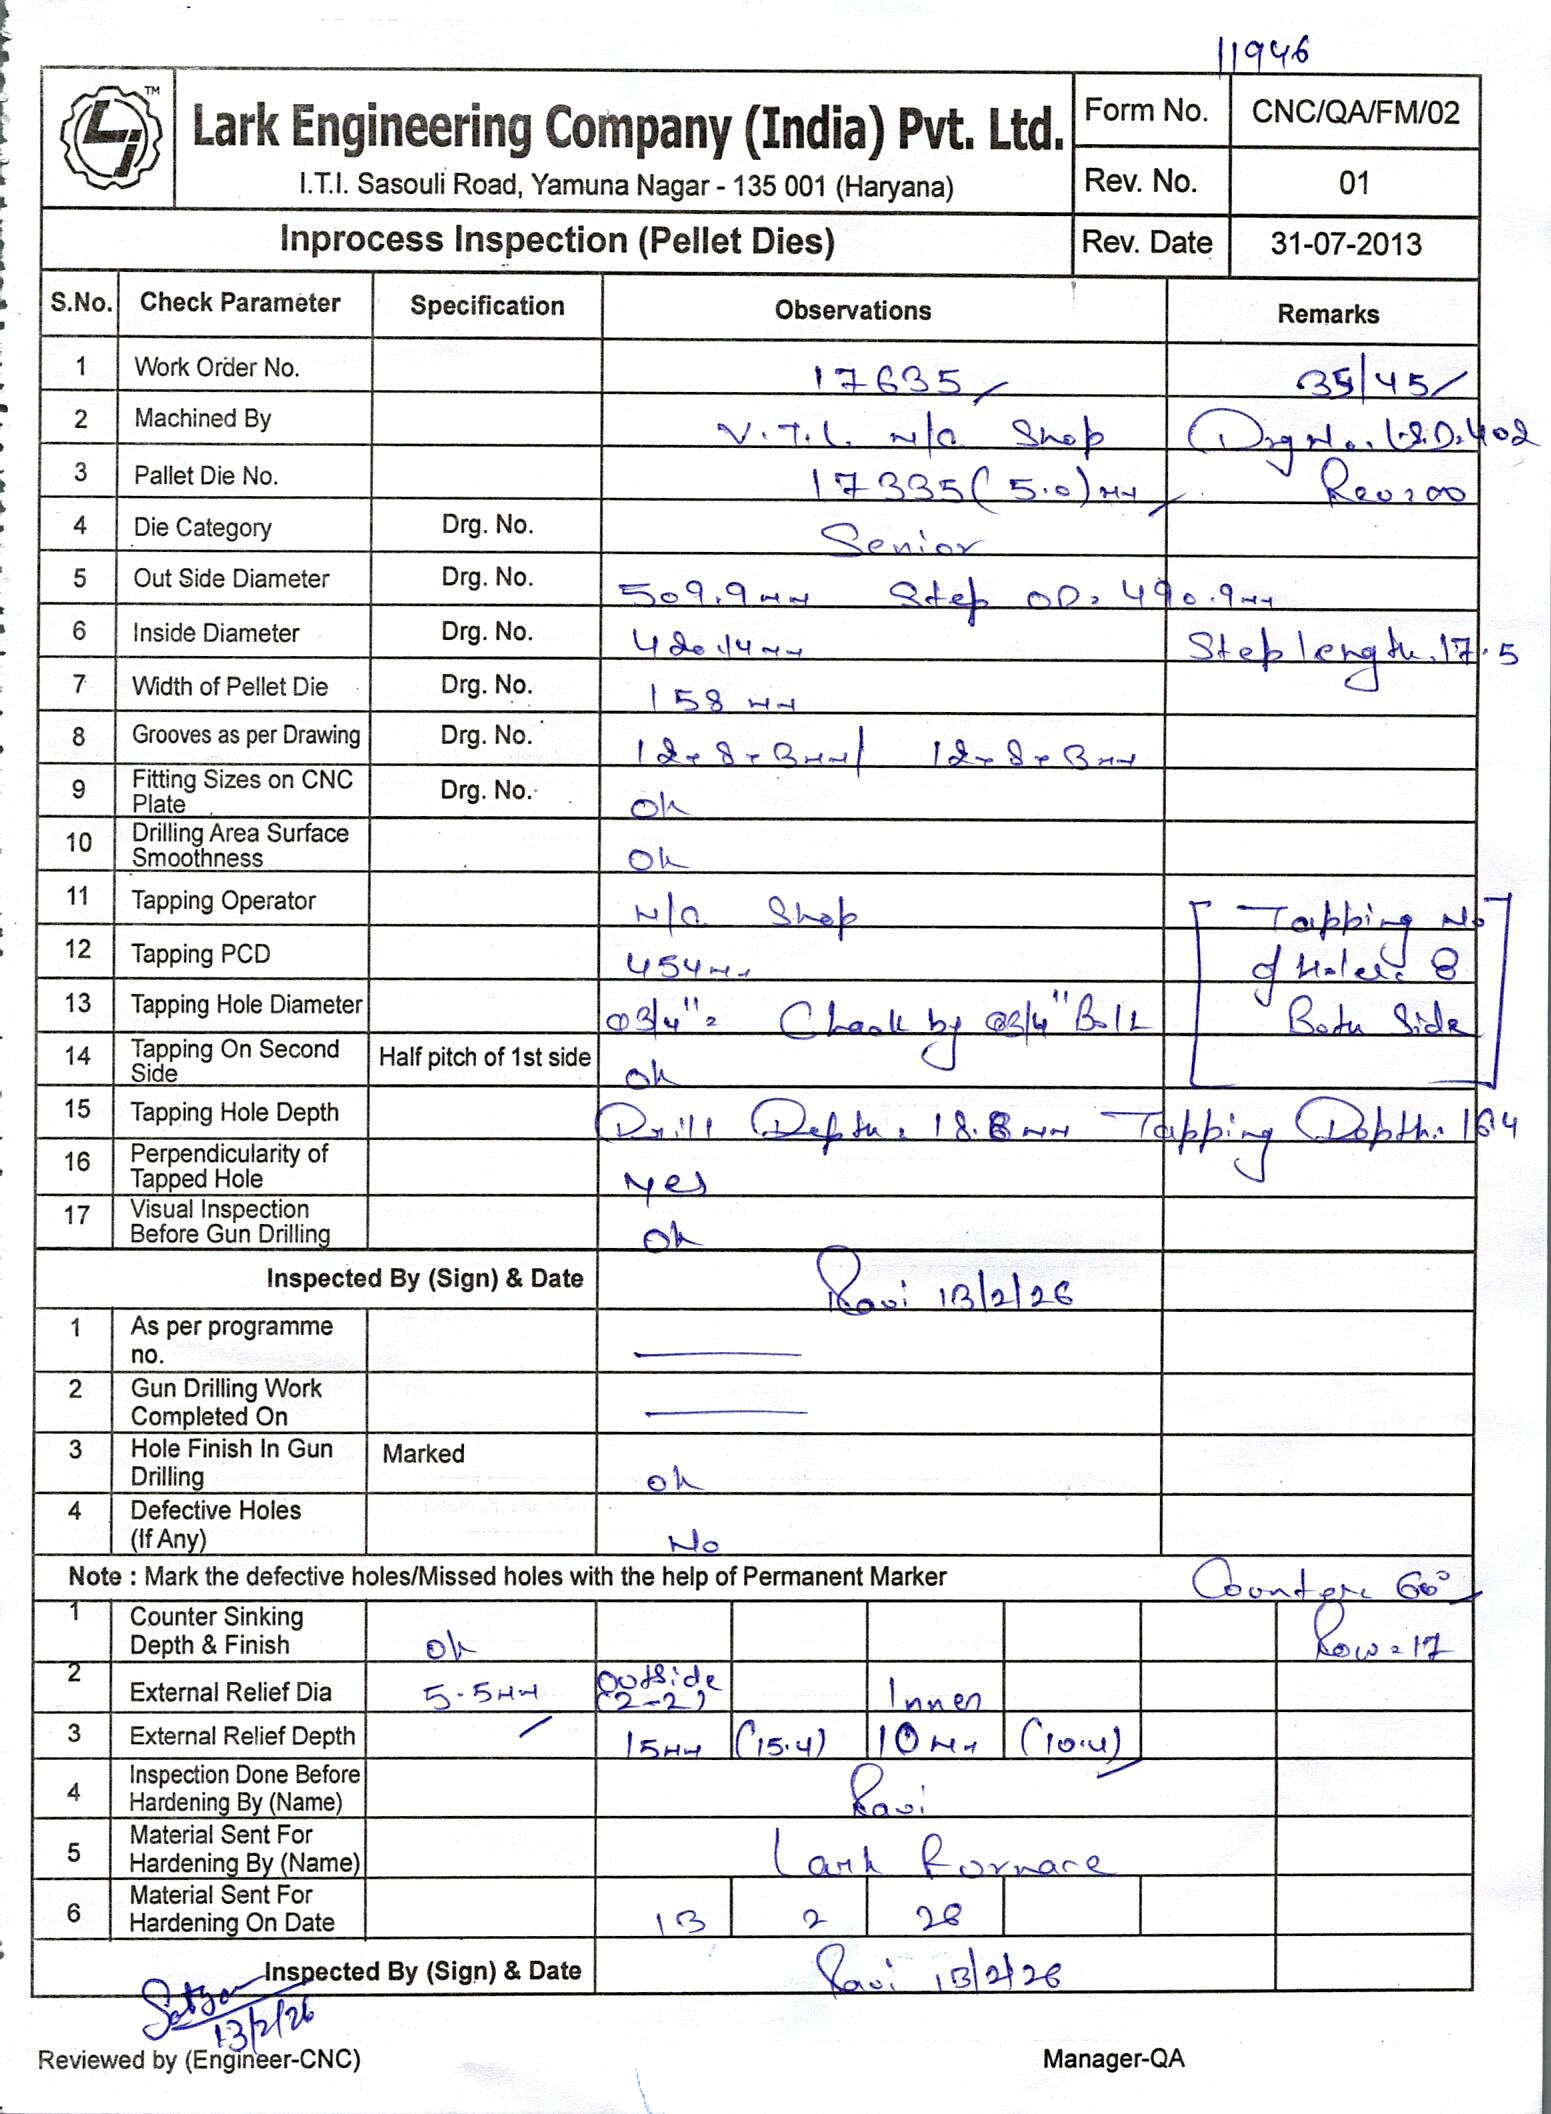 11946
TM
Lark Engineering Company (India) Pvt. Ltd.
I.T.I. Sasouli Road, Yamuna Nagar - 135 001 (Haryana)
Form No. CNC/QA/FM/02
Rev. No. 01
Inprocess Inspection (Pellet Dies) Rev. Date 31-07-2013
S.No. Check Parameter Specification Observations Remarks
1 Work Order No. 17635 35/45
2 Machined By V.T.L. M/C Shop Drg No. L.S.D. 402
3 Pallet Die No. 17335 (5.0) mm Rev: 00
4 Die Category Drg. No. Senior
5 Out Side Diameter Drg. No. 509.9mm Step OD: 490.9mm
6 Inside Diameter Drg. No. 420.14mm Step length. 17.5
7 Width of Pellet Die Drg. No. 158 mm
8 Grooves as per Drawing Drg. No. 12x8x3mm / 12x8x3mm
9 Fitting Sizes on CNC Plate Drg. No. Ok
10 Drilling Area Surface Smoothness Ok
11 Tapping Operator M/C Shop Tapping No
12 Tapping PCD 454mm of Holes: 8
13 Tapping Hole Diameter Ø3/4" = Chack by Ø3/4" Bolt Both Side
14 Tapping On Second Side Half pitch of 1st side Ok
15 Tapping Hole Depth Drill Depth: 18.8mm Tapping Depth: 16.4
16 Perpendicularity of Tapped Hole Yes
17 Visual Inspection Before Gun Drilling Ok
Inspected By (Sign) & Date Ravi 13/2/26
1 As per programme no.
2 Gun Drilling Work Completed On
3 Hole Finish In Gun Drilling Marked Ok
4 Defective Holes (If Any) No
Note : Mark the defective holes/Missed holes with the help of Permanent Marker Counter 60°
1 Counter Sinking Depth & Finish Ok Row = 17
2 External Relief Dia 5.5mm Outside (2-2) Inner
3 External Relief Depth 15mm (15.4) 10mm (10.4)
4 Inspection Done Before Hardening By (Name) Ravi
5 Material Sent For Hardening By (Name) Lark Furnace
6 Material Sent For Hardening On Date 13 2 26
Inspected By (Sign) & Date Ravi 13/2/26
13/2/26
Reviewed by (Engineer-CNC) Manager-QA